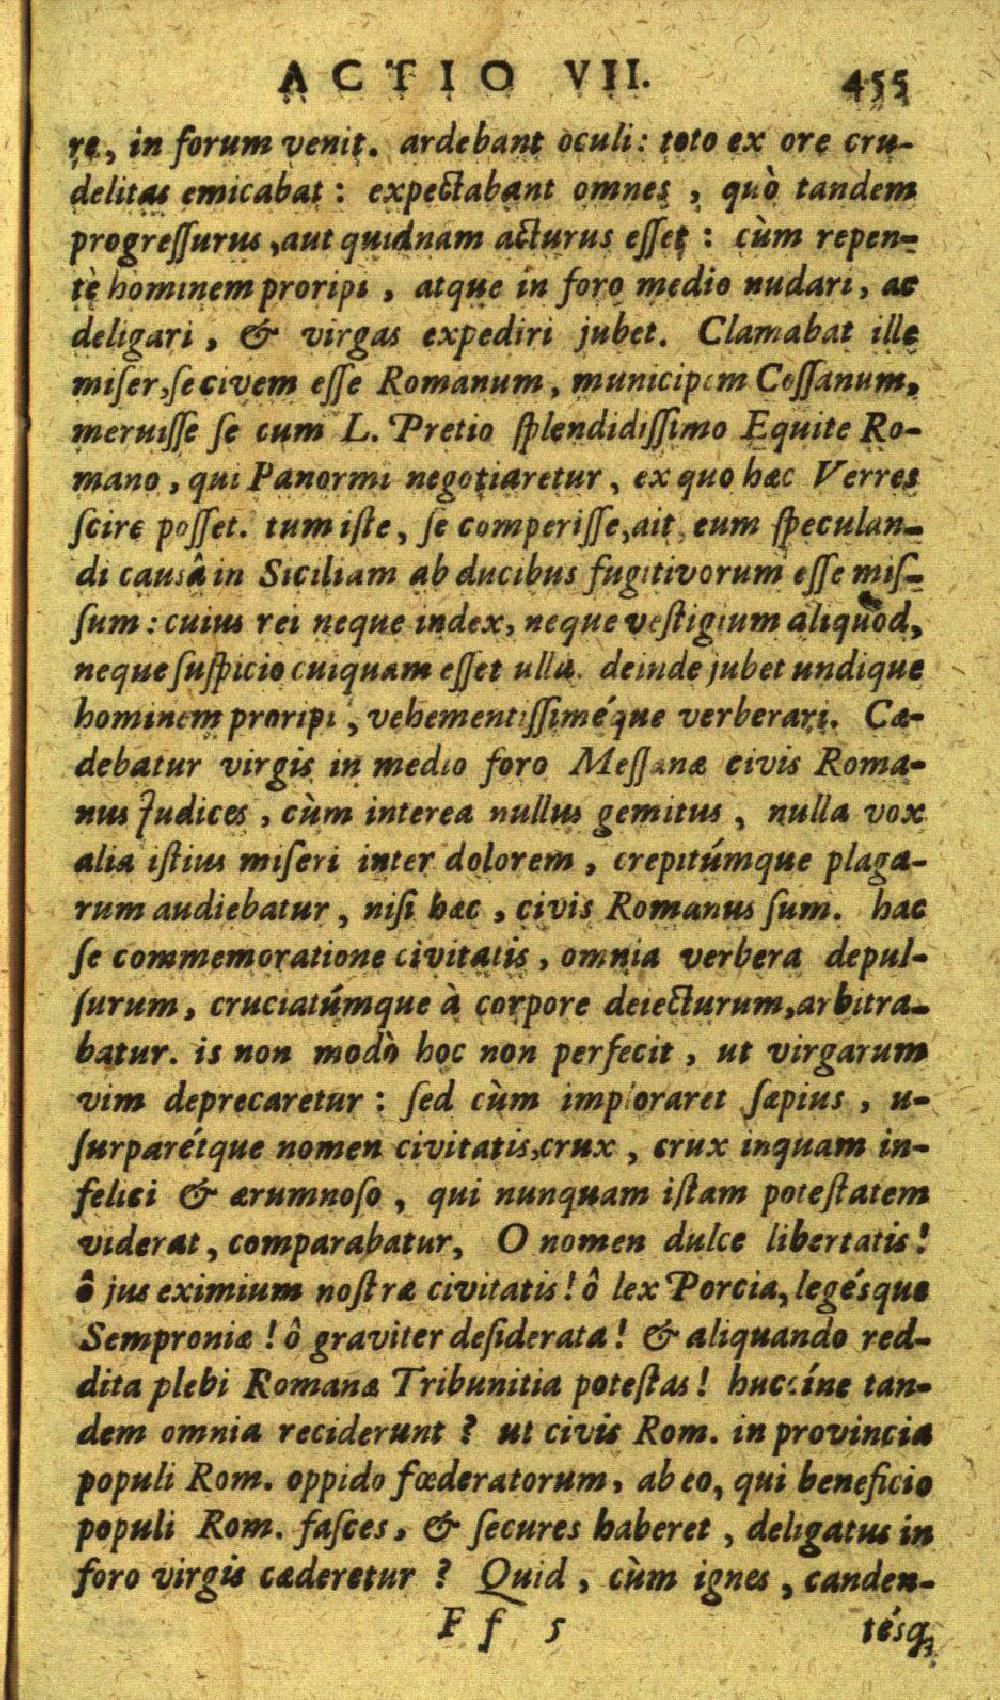 ACTIO VII. 455
re, in forum venit. ardebant oculi: toto ex ore cru-
delitas emicabat: expectabant omnes, quò tandem
progreſſurus, aut quidnam acturus eſſet: cùm repen-
tè hominem proripi, atque in foro medio nudari, ac
deligari, & virgas expediri jubet. Clamabat ille
miſer, ſe civem eſſe Romanum, municipem Coſſanum,
meruiſſe ſe cum L. Pretio ſplendidiſſimo Equite Ro-
mano, qui Panormi negotiaretur, ex quo hæc Verres
ſcire poſſet. tum iſte, ſe comperiſſe, ait, eum ſpeculan-
di causâ in Siciliam ab ducibus fugitivorum eſſe miſ-
ſum: cuius rei neque index, neque veſtigium aliquod,
neque ſuſpicio cuiquam eſſet ulla. deinde jubet undique
hominem proripi, vehementiſſiméque verberari. Cæ-
debatur virgis in medio foro Meſſanæ civis Roma-
nus Judices, cùm interea nullus gemitus, nulla vox
alia iſtius miſeri inter dolorem, crepitúmque plaga-
rum audiebatur, niſi hæc, civis Romanus ſum. hac
ſe commemoratione civitatis, omnia verbera depul-
ſurum, cruciatúmque à corpore deiecturum, arbitra-
batur. is non modò hoc non perfecit, ut virgarum
vim deprecaretur: ſed cùm imploraret ſæpius, u-
ſurparétque nomen civitatis, crux, crux inquam in-
felici & ærumnoſo, qui nunquam iſtam poteſtatem
viderat, comparabatur, O nomen dulce libertatis!
ô jus eximium noſtræ civitatis! ô lex Porcia, legésque
Semproniæ! ô graviter deſiderata! & aliquando red-
dita plebi Romanæ Tribunitia poteſtas! huccíne tan-
dem omnia reciderunt? ut civis Rom. in provincia
populi Rom. oppido fœderatorum, ab eo, qui beneficio
populi Rom. faſces, & ſecures haberet, deligatus in
foro virgis cæderetur? Quid, cùm ignes, canden-
Ff 5 tésq;